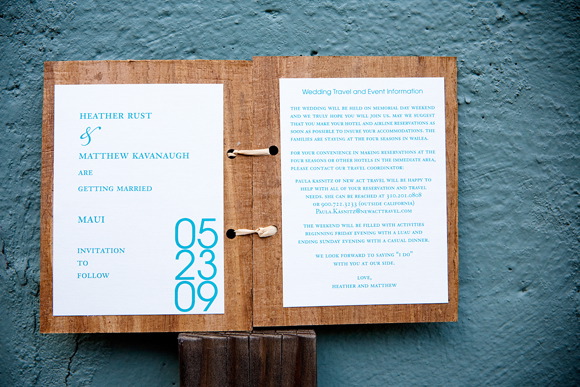 HEATHER RUST
&
MATTHEW KAVANAUGH
ARE
GETTING MARRIED
MAUI
INVITATION
TO
FOLLOW
05
23
09
Wedding Travel and Event Information
THE WEDDING WILL BE HELD ON MEMORIAL DAY WEEKEND
AND WE TRULY HOPE YOU WILL JOIN US. MAY WE SUGGEST
THAT YOU MAKE YOUR HOTEL AND AIRLINE RESERVATIONS AS
SOON AS POSSIBLE TO INSURE YOUR ACCOMMODATIONS. THE
FAMILIES ARE STAYING AT THE FOUR SEASONS IN WAILEA.
FOR YOUR CONVENIENCE IN MAKING RESERVATIONS AT THE
FOUR SEASONS OR OTHER HOTELS IN THE IMMEDIATE AREA,
PLEASE CONTACT OUR TRAVEL COORDINATOR:
PAULA KASNITZ OF NEW ACT TRAVEL WILL BE HAPPY TO
HELP WITH ALL OF YOUR RESERVATION AND TRAVEL
NEEDS. SHE CAN BE REACHED AT 310.201.0808
OR 900.721.3233 (OUTSIDE CALIFORNIA)
PAULA.KASNITZ@NEWACTTRAVEL.COM
THE WEEKEND WILL BE FILLED WITH ACTIVITIES
BEGINNING FRIDAY EVENING WITH A LUAU AND
ENDING SUNDAY EVENING WITH A CASUAL DINNER.
WE LOOK FORWARD TO SAYING "I DO"
WITH YOU AT OUR SIDE.
LOVE,
HEATHER AND MATTHEW